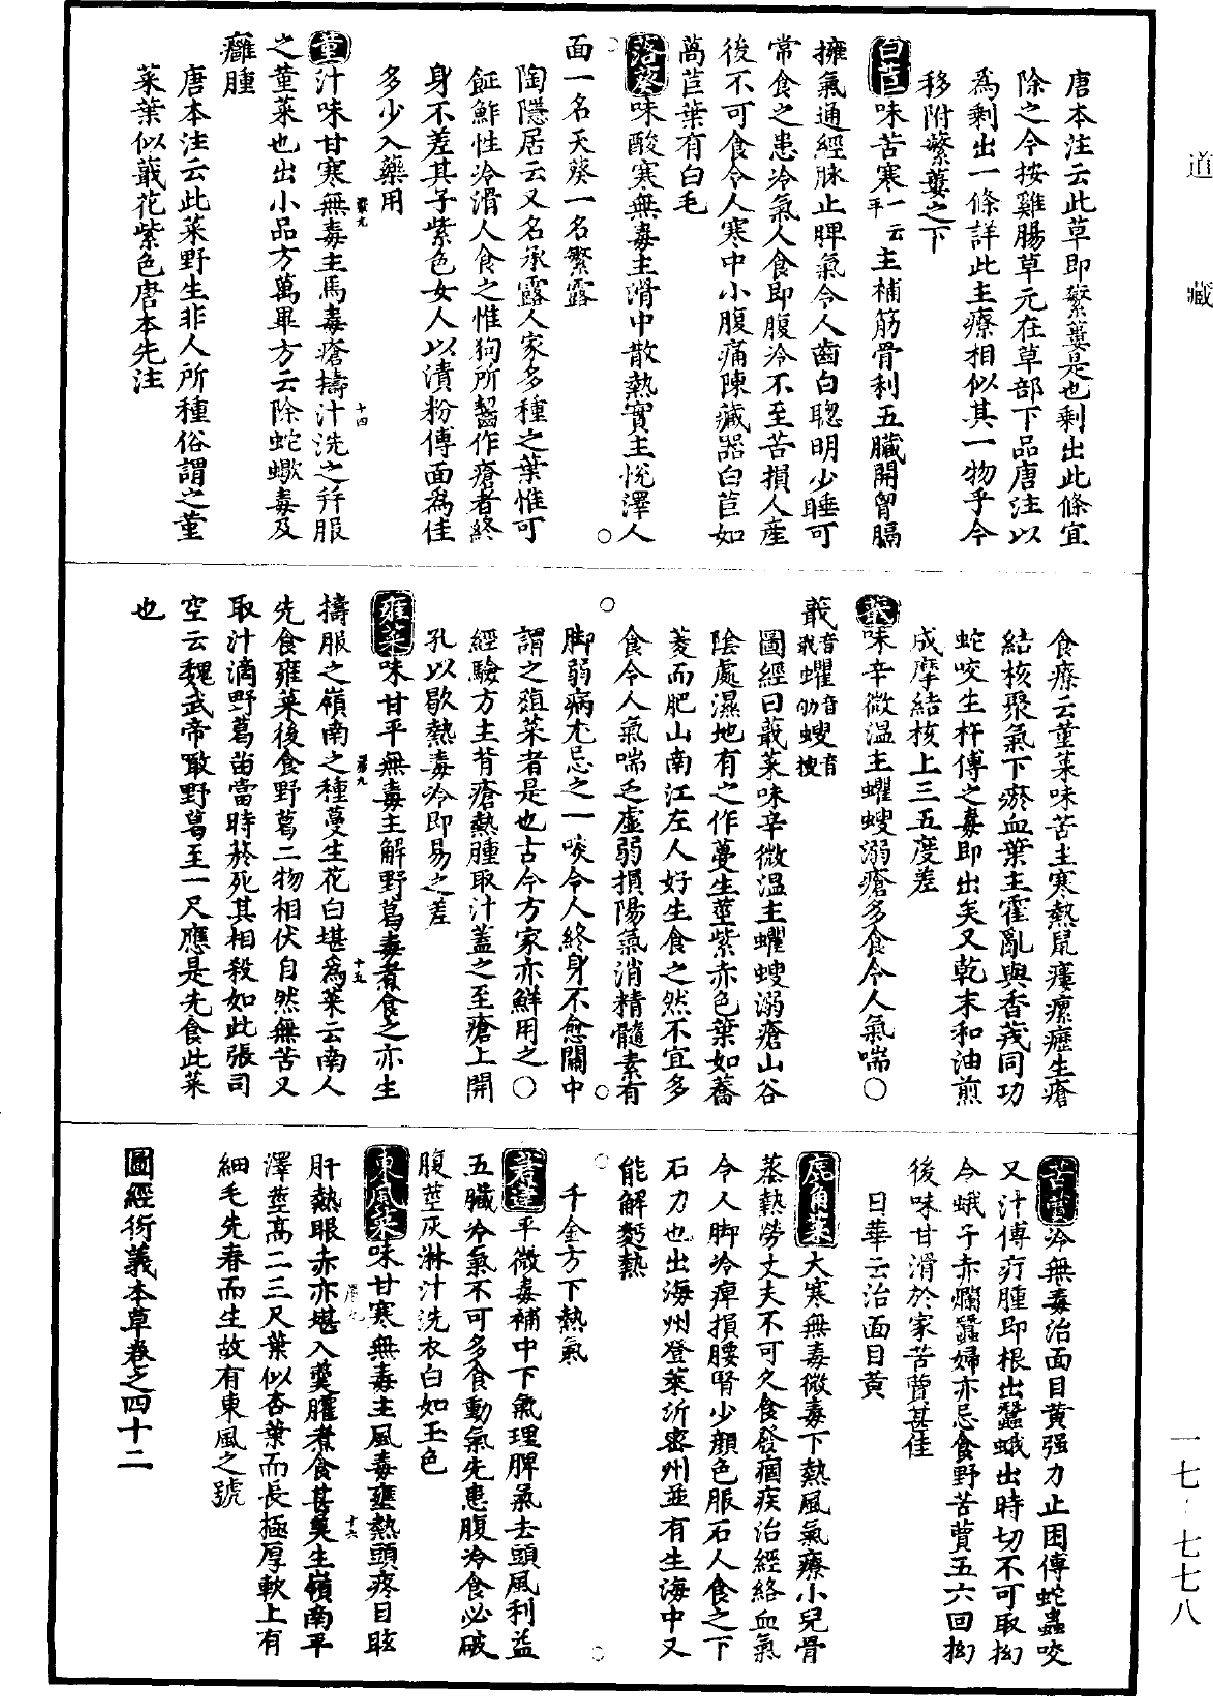 道藏
唐本注云此草即蘩蔞是也剩出此條宜
除之今按雞腸草元在草部下品唐注以
為剩出一條詳此主療相似其一物乎今
移附蘩蔞之下
白苣味苦寒一云平主補筋骨利五臟開胷膈
擁氣通經脉止脾氣令人齒白聰明少睡可
常食之患冷氣人食即腹冷不至苦損人產
後不可食令人寒中小腹痛陳藏器白苣如
萵苣葉有白毛
落葵味酸寒無毒主滑中散熱實主悅澤人
面一名天葵一名繁露
陶隱居云又名承露人家多種之葉惟可
飪鮓性冷滑人食之惟狗所齧作瘡者終
身不差其子紫色女人以漬粉傅面為佳
多少入藥用
堇汁味甘寒無毒主馬毒瘡擣汁洗之并服
之堇菜也出小品方萬畢方云除蛇蠍毒及
癰腫
唐本注云此菜野生非人所種俗謂之堇
菜葉似蕺花紫色唐本先注
食療云堇菜味苦主寒熱鼠瘻瘰癧生瘡
結核聚氣下瘀血葉主霍亂與香茙同功
蛇咬生杵傅之毒即出矣又乾末和油煎
成摩結核上三五度差
蕺味辛微溫主蠷螋溺瘡多食令人氣喘
蕺音戢蠷音劬螋音搜
圖經曰蕺菜味辛微溫主蠷螋溺瘡山谷
陰處濕地有之作蔓生莖紫赤色葉如蕎
菱而肥山南江左人好生食之然不宜多
食令人氣喘乏虛弱損陽氣消精髓素有
脚弱病尤忌之一啖令人終身不愈關中
謂之葅菜者是也古今方家亦鮮用之
經驗方主背瘡熱腫取汁蓋之至瘡上開
孔以歇熱毒冷即易之差
蕹菜味甘平無毒主解野葛毒煮食之亦生
擣服之嶺南之種蔓生花白堪為菜云南人
先食蕹菜後食野葛二物相伏自然無苦又
取汁滴野葛苗當時菸死其相殺如此張司
空云魏武帝噉野葛至一尺應是先食此菜
也
苦蕒冷無毒治面目黃强力止困傅蛇蟲咬
又汁傅疔腫即根出蠶蛾出時切不可取拗
令蛾子赤爛蠶婦亦忌食野苦蕒五六回拗
後味甘滑於家苦蕒甚佳
日華云治面目黃
鹿角菜大寒無毒微毒下熱風氣療小兒骨
蒸熱勞丈夫不可久食發痼疾治經絡血氣
令人脚冷痺損腰腎少顏色服石人食之下
石力也出海州登萊沂密州並有生海中又
能解麪熱
千金方下熱氣
莙薘平微毒補中下氣理脾氣去頭風利益
五臟冷氣不可多食動氣先患腹冷食必破
腹莖灰淋汁洗衣白如玉色
東風菜味甘寒無毒主風毒壅熱頭疼目眩
肝熱眼赤亦堪入羹臛煮食甚美生嶺南平
澤莖高二三尺葉似杏葉而長極厚軟上有
細毛先春而生故有東風之號
圖經衍義本草卷之四十二
一七－七七八